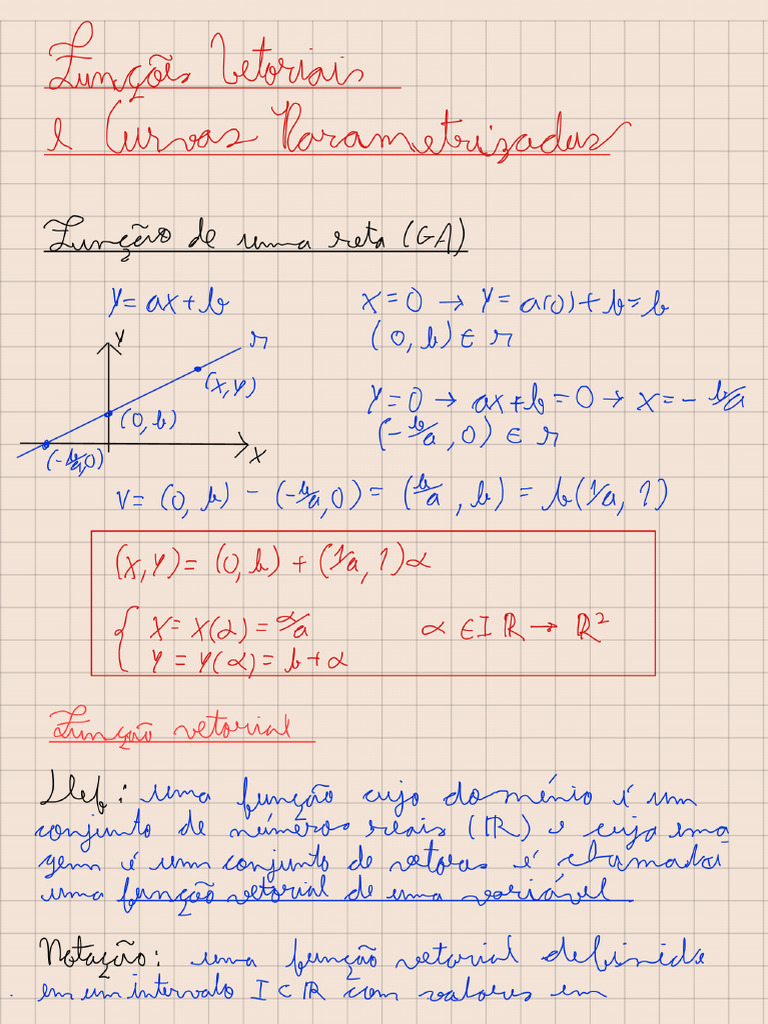 Funções Vetoriais
e Curvas Parametrizadas
Função de uma reta (GA)
y = ax + b
x = 0 → y = a(0) + b = b
(0, b) ∈ r
y
r
(x, y)
(0, b)
(-b/a, 0)
x
y = 0 → ax + b = 0 → x = - b/a
(-b/a, 0) ∈ r
v = (0, b) - (-b/a, 0) = (b/a, b) = b(1/a, 1)
(x, y) = (0, b) + (1/a, 1)α
{ x = x(α) = α/a
y = y(α) = b + α
α ∈ I ℝ → ℝ²
Função vetorial
Def: uma função cujo domínio é um
conjunto de números reais (ℝ) e cuja ima
gem é um conjunto de vetores é chamada
uma função vetorial de uma variável.
Notação: uma função vetorial definida
em um intervalo I ⊂ ℝ com valores em